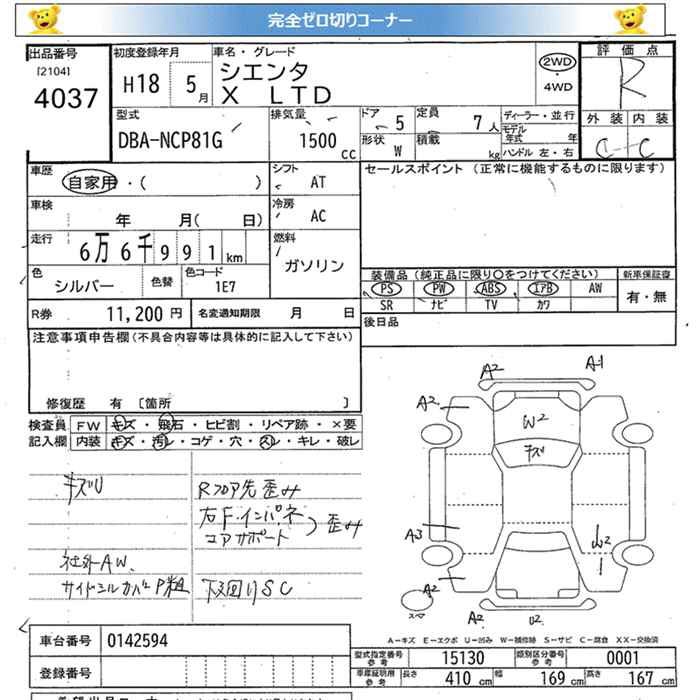 完全ゼロ切りコーナー
出品番号 初度登録年月 車名・グレード 評価点
[2104] シエンタ 2WD
4037 H18 5月 X LTD ・ R
4WD
型式 排気量 ドア 5 定員 7人 ディーラー・並行 外装 内装
DBA-NCP81G 1500cc 形状 W 積載 kg モデル年式 年 C C
ハンドル 左・右
車歴 シフト セールスポイント (正常に機能するものに限ります)
自家用・( ) AT
車検 冷房
年 月( 日) AC
走行 燃料
6万6千991km ガソリン
色 シルバー 色替 色コード 1E7
装備品(純正品に限り○をつけてください) 新車保証書
PS PW ABS エアB AW 有・無
SR ナビ TV カワ
R券 11,200円 名変通知期限 月 日
後日品
注意事項申告欄(不具合内容等は具体的に記入して下さい)
修復歴 有 [箇所 ]
検査員 FW キズ・飛石・ヒビ割・リペア跡・×要
記入欄 内装 キズ・汚レ・コゲ・穴・スレ・キレ・破レ
キズU Rフロア先歪み
右F・インパネ
コアサポート 歪み
社外AW.
サイドシルカバーP粗 下回りSC
A2 A1
A2
W2
キズ
A3 W2
A2 A2 U2
スペア
A-キズ E-エクボ U-凹み W-補修跡 S-サビ C-腐食 XX-交換済
車台番号 0142594
型式指定番号 参考 15130 類別区分番号 参考 0001
登録番号
車庫証明用 参考 長さ 410 cm 幅 169 cm 高さ 167 cm